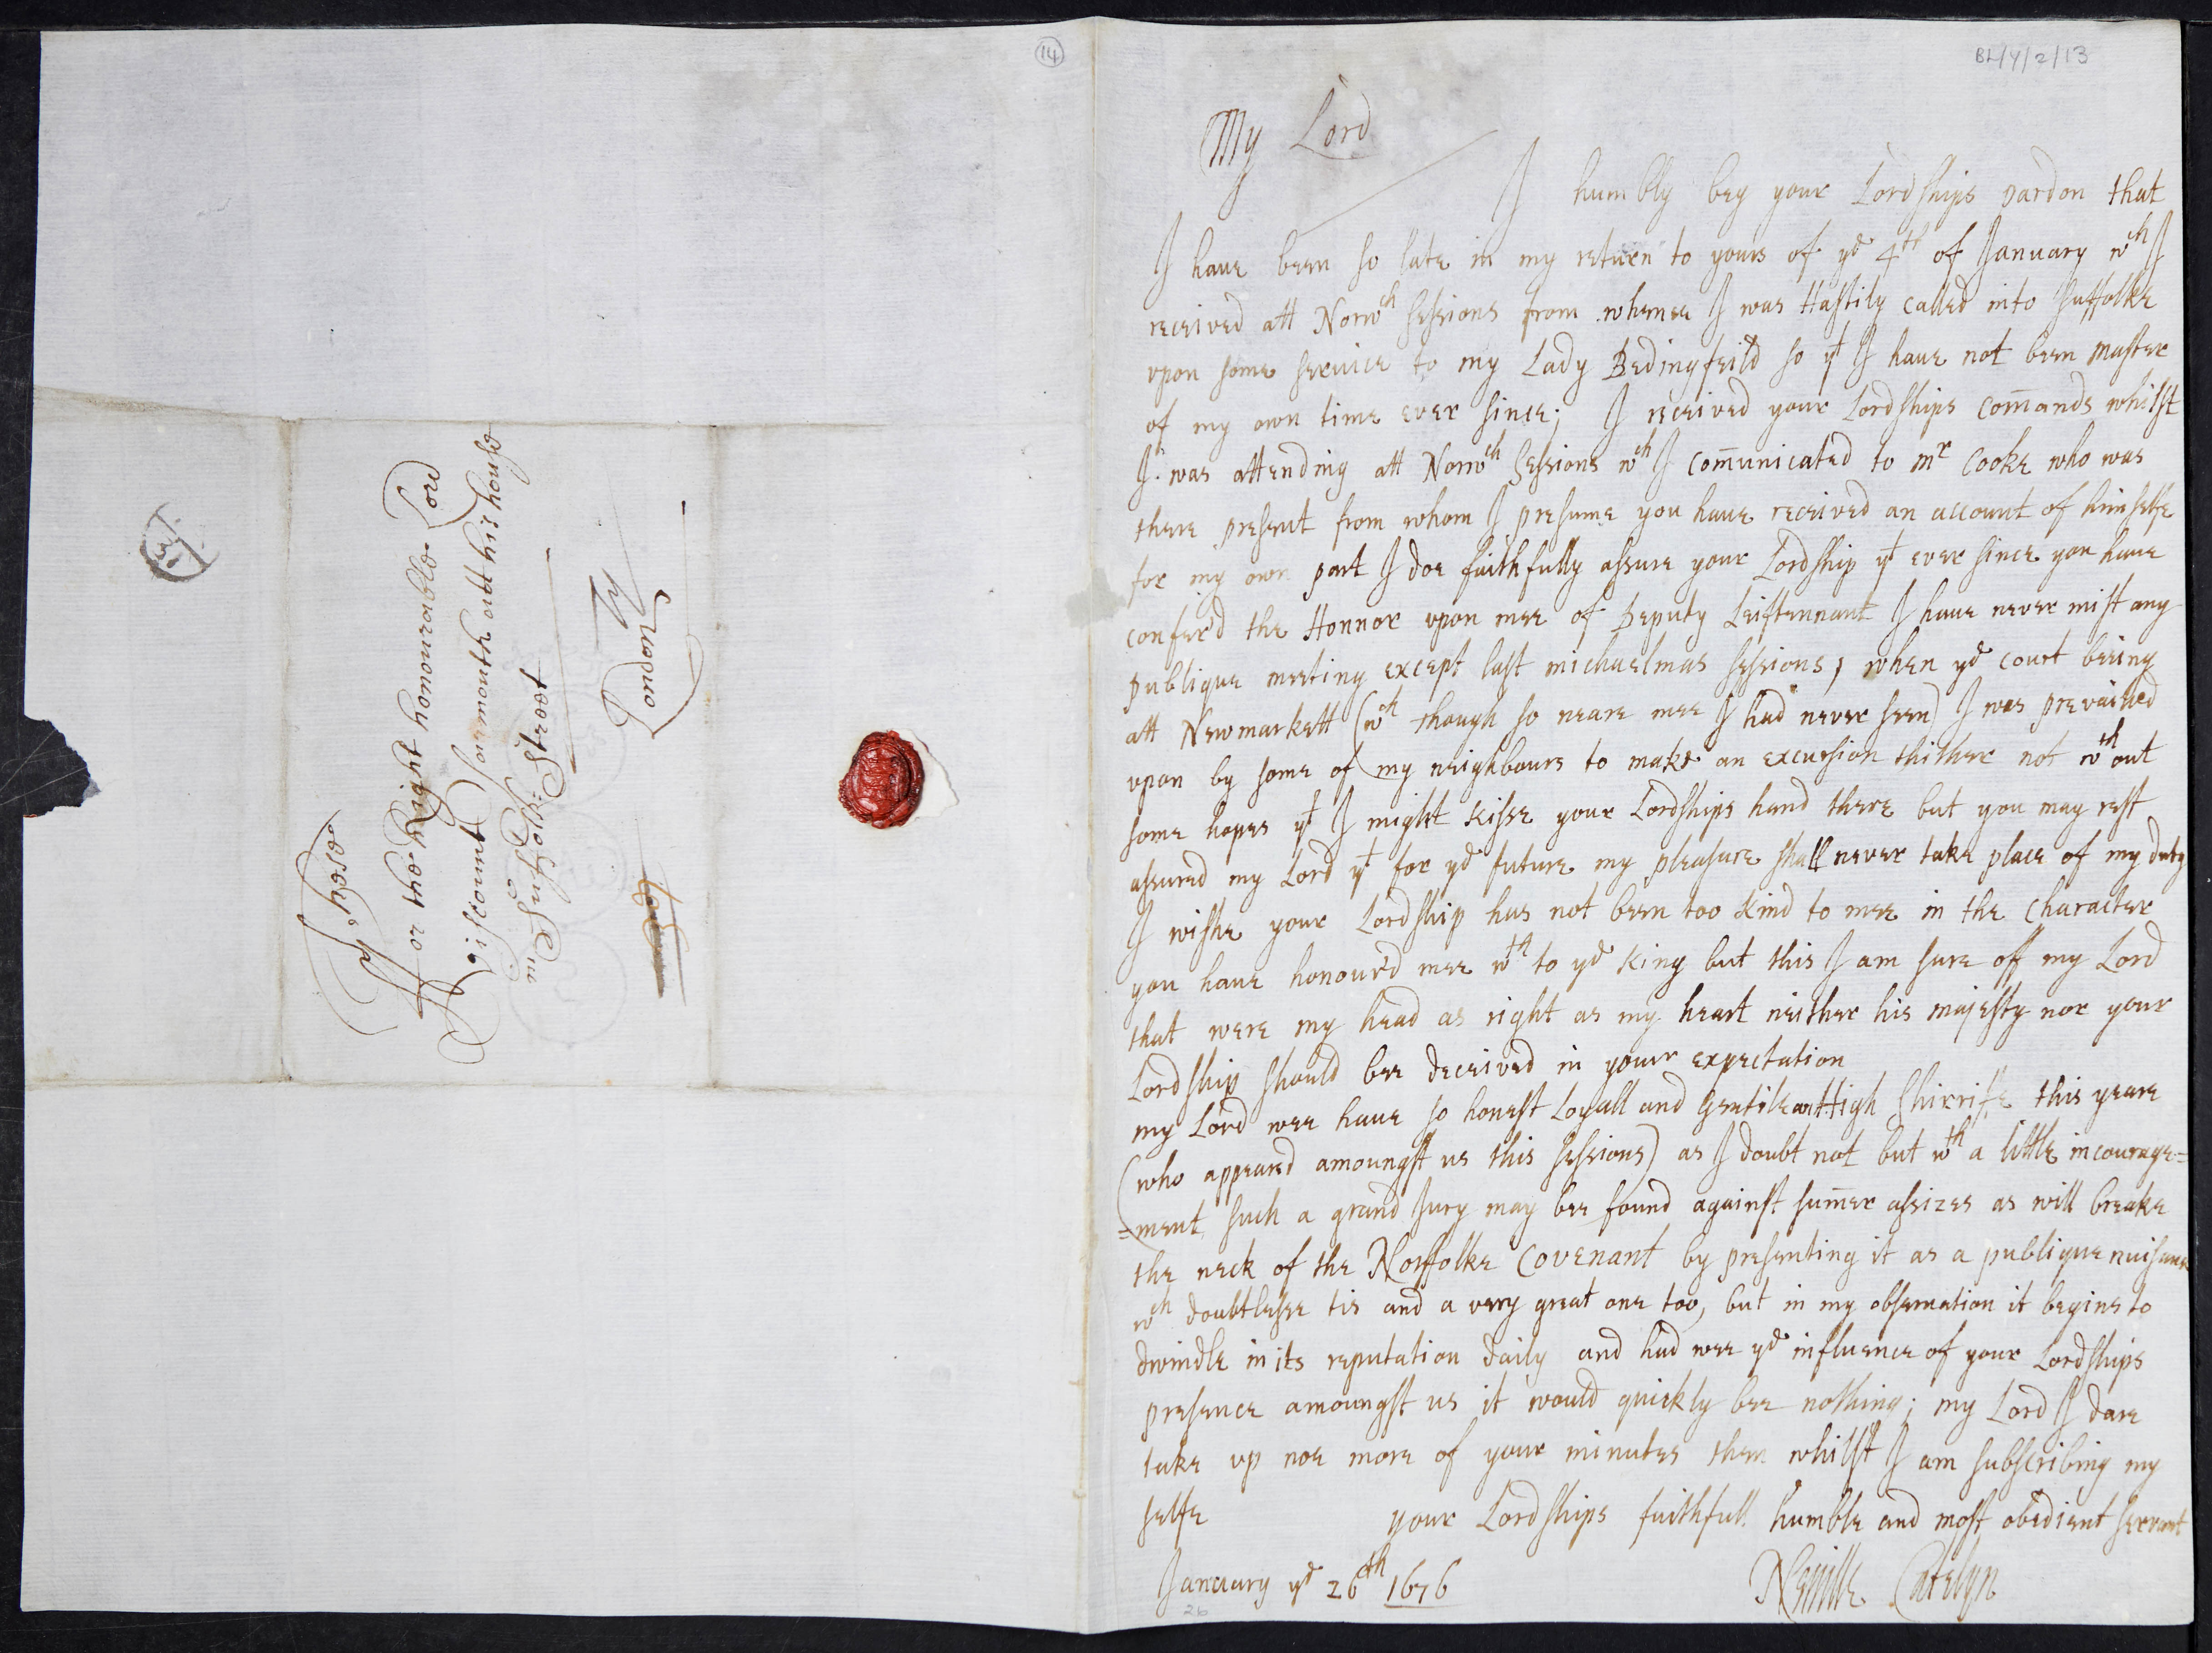 14
BL/Y/2/13
These
For the Right honourable Lord
Viscount Yarmouth att his house
in Suffolk=Street
London
My Lord
I humbly beg your Lordships pardon that
I haue been so late in my return to yours of ye 4th of January wch I
received att Norwch sessions from whence I was Hastily called into Suffolke
vpon some seruice to my Lady Bedingfeild so yt I haue not been master
of my own time ever since; I received your Lordships comands whilst
I was attending att Norwch Sessions wch I comunicated to mr Cooke who was
there present from whom I presume you haue received an account of himselfe
for my own part I doe faithfully assure your Lordship yt ever since you haue
confer'd the Honnor vpon mee of Deputy Leiftennant I haue never mist any
publique meeting except last michaelmas sessions, when ye court beeing
att Newmarkett (wch though so neare mee I had never seen) I was prevailed
vpon by some of my neighbours to make an excursion thither not wthout
some hopes yt I might kisse your Lordships hand there but you may rest
assured my Lord yt for ye future my pleasure shall never take place of my duty
I wishe your Lordship has not been too kind to mee in the Character
you haue honour'd mee wth to ye King but this I am sure off my Lord
that were my head as right as my heart neither his majesty nor your
Lordship should bee deceived in your expectation
my Lord wee haue so honest Loyall and Gentile an High Shirrife this yeare
(who appeard amoungst us this sessions) as I doubt not but wth a little incourage=
=ment such a grand Jury may bee found against sumer assizes as will breake
the neck of the Norffolke Covenant by presenting it as a publique nuisance
wch doubtlesse tis and a very great one too, but in my obseruation it begins to
dwindle in its reputation daily and had wee ye influence of your Lordships
presence amoungst us it would quickly bee nothing; my Lord I dare
take vp noe more of your minutes then whilst I am subscribing my
selfe your Lordships faithfull humble and most obedient servant
January ye 26th 1676 Neville Catelyn
26